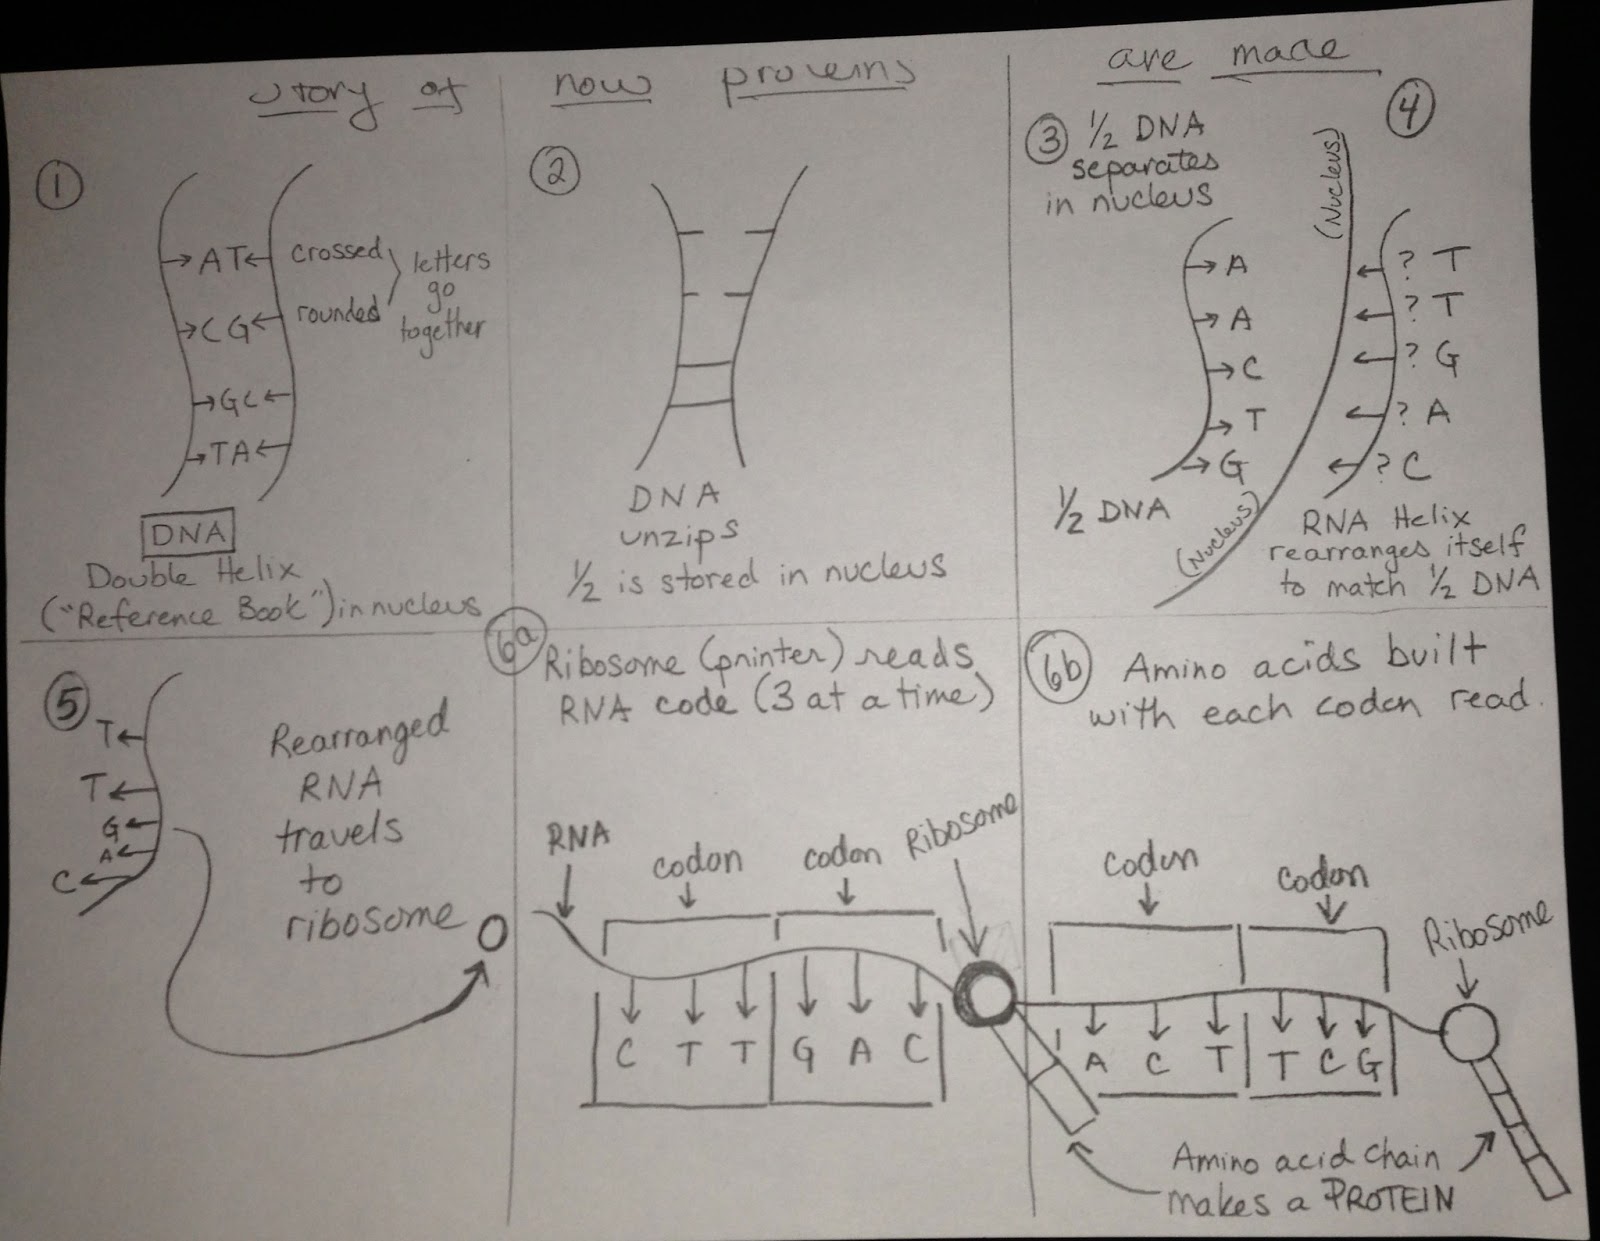 Story of how proteins are made
1
→AT← crossed
→CG← rounded
letters
go
together
→GC←
→TA←
DNA
Double Helix
("Reference Book") in nucleus
2
DNA
unzips
1/2 is stored in nucleus
3 1/2 DNA
separates
in nucleus
→ A
→ A
→ C
→ T
→ G
1/2 DNA
(Nucleus)
(Nucleus)
4
← ? T
← ? T
← ? G
← ? A
← ? C
RNA Helix
rearranges itself
to match 1/2 DNA
5
T←
T←
G←
A←
C←
Rearranged
RNA
travels
to
ribosome
6a Ribosome (printer) reads
RNA code (3 at a time)
RNA
codon
codon
Ribosome
C T T G A C
6b Amino acids built
with each codon read.
Codon
Codon
Ribosome
A C T T C G
Amino acid chain
makes a PROTEIN